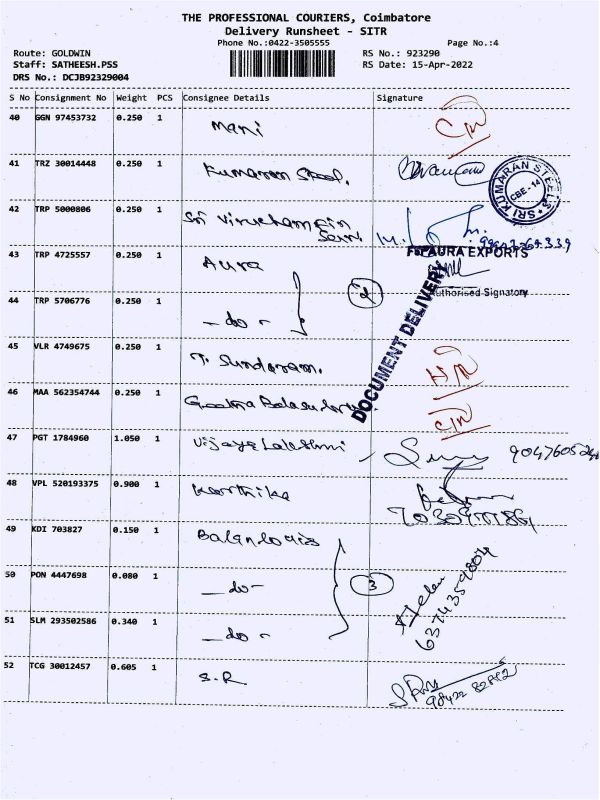 THE PROFESSIONAL COURIERS, Coimbatore
Delivery Runsheet - SITR
Phone No.:0422-3505555 Page No.:4
Route: GOLDWIN RS No.: 923290
Staff: SATHEESH.PSS RS Date: 15-Apr-2022
DRS No.: DCJB92329004
S No Consignment No Weight PCS Consignee Details Signature
40 GGN 97453732 0.250 1 Mani
41 TRZ 30014448 0.250 1 Kumaran Steel.
SRI KUMARAN STEELS CBE-14
42 TRP 5000806 0.250 1 Sri
43 TRP 4725557 0.250 1 Aura
For AURA EXPORTS
Authorised Signatory
DOCUMENT DELIVERY
44 TRP 5706776 0.250 1 - do - 2
45 VLR 4749675 0.250 1 T. Sundaram.
46 MAA 562354744 0.250 1 Geetha
47 PGT 1784960 1.050 1 Vijaya Lakshmi
48 VPL 520193375 0.900 1 Karthika
49 KDI 703827 0.150 1
50 PON 4447698 0.080 1 - do - 3
Helen
6374359804
51 SLM 293502586 0.340 1 - do -
52 TCG 30012457 0.605 1 S.R